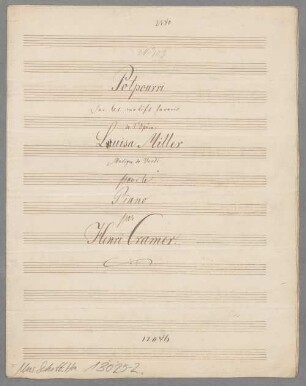 Potpourri
Sur les motifs favoris
de l'Opéra
Louisa Miller
Musique de Verdi
pour le
Piano
par
Henri Cramer.
Mus. Schott. Ha